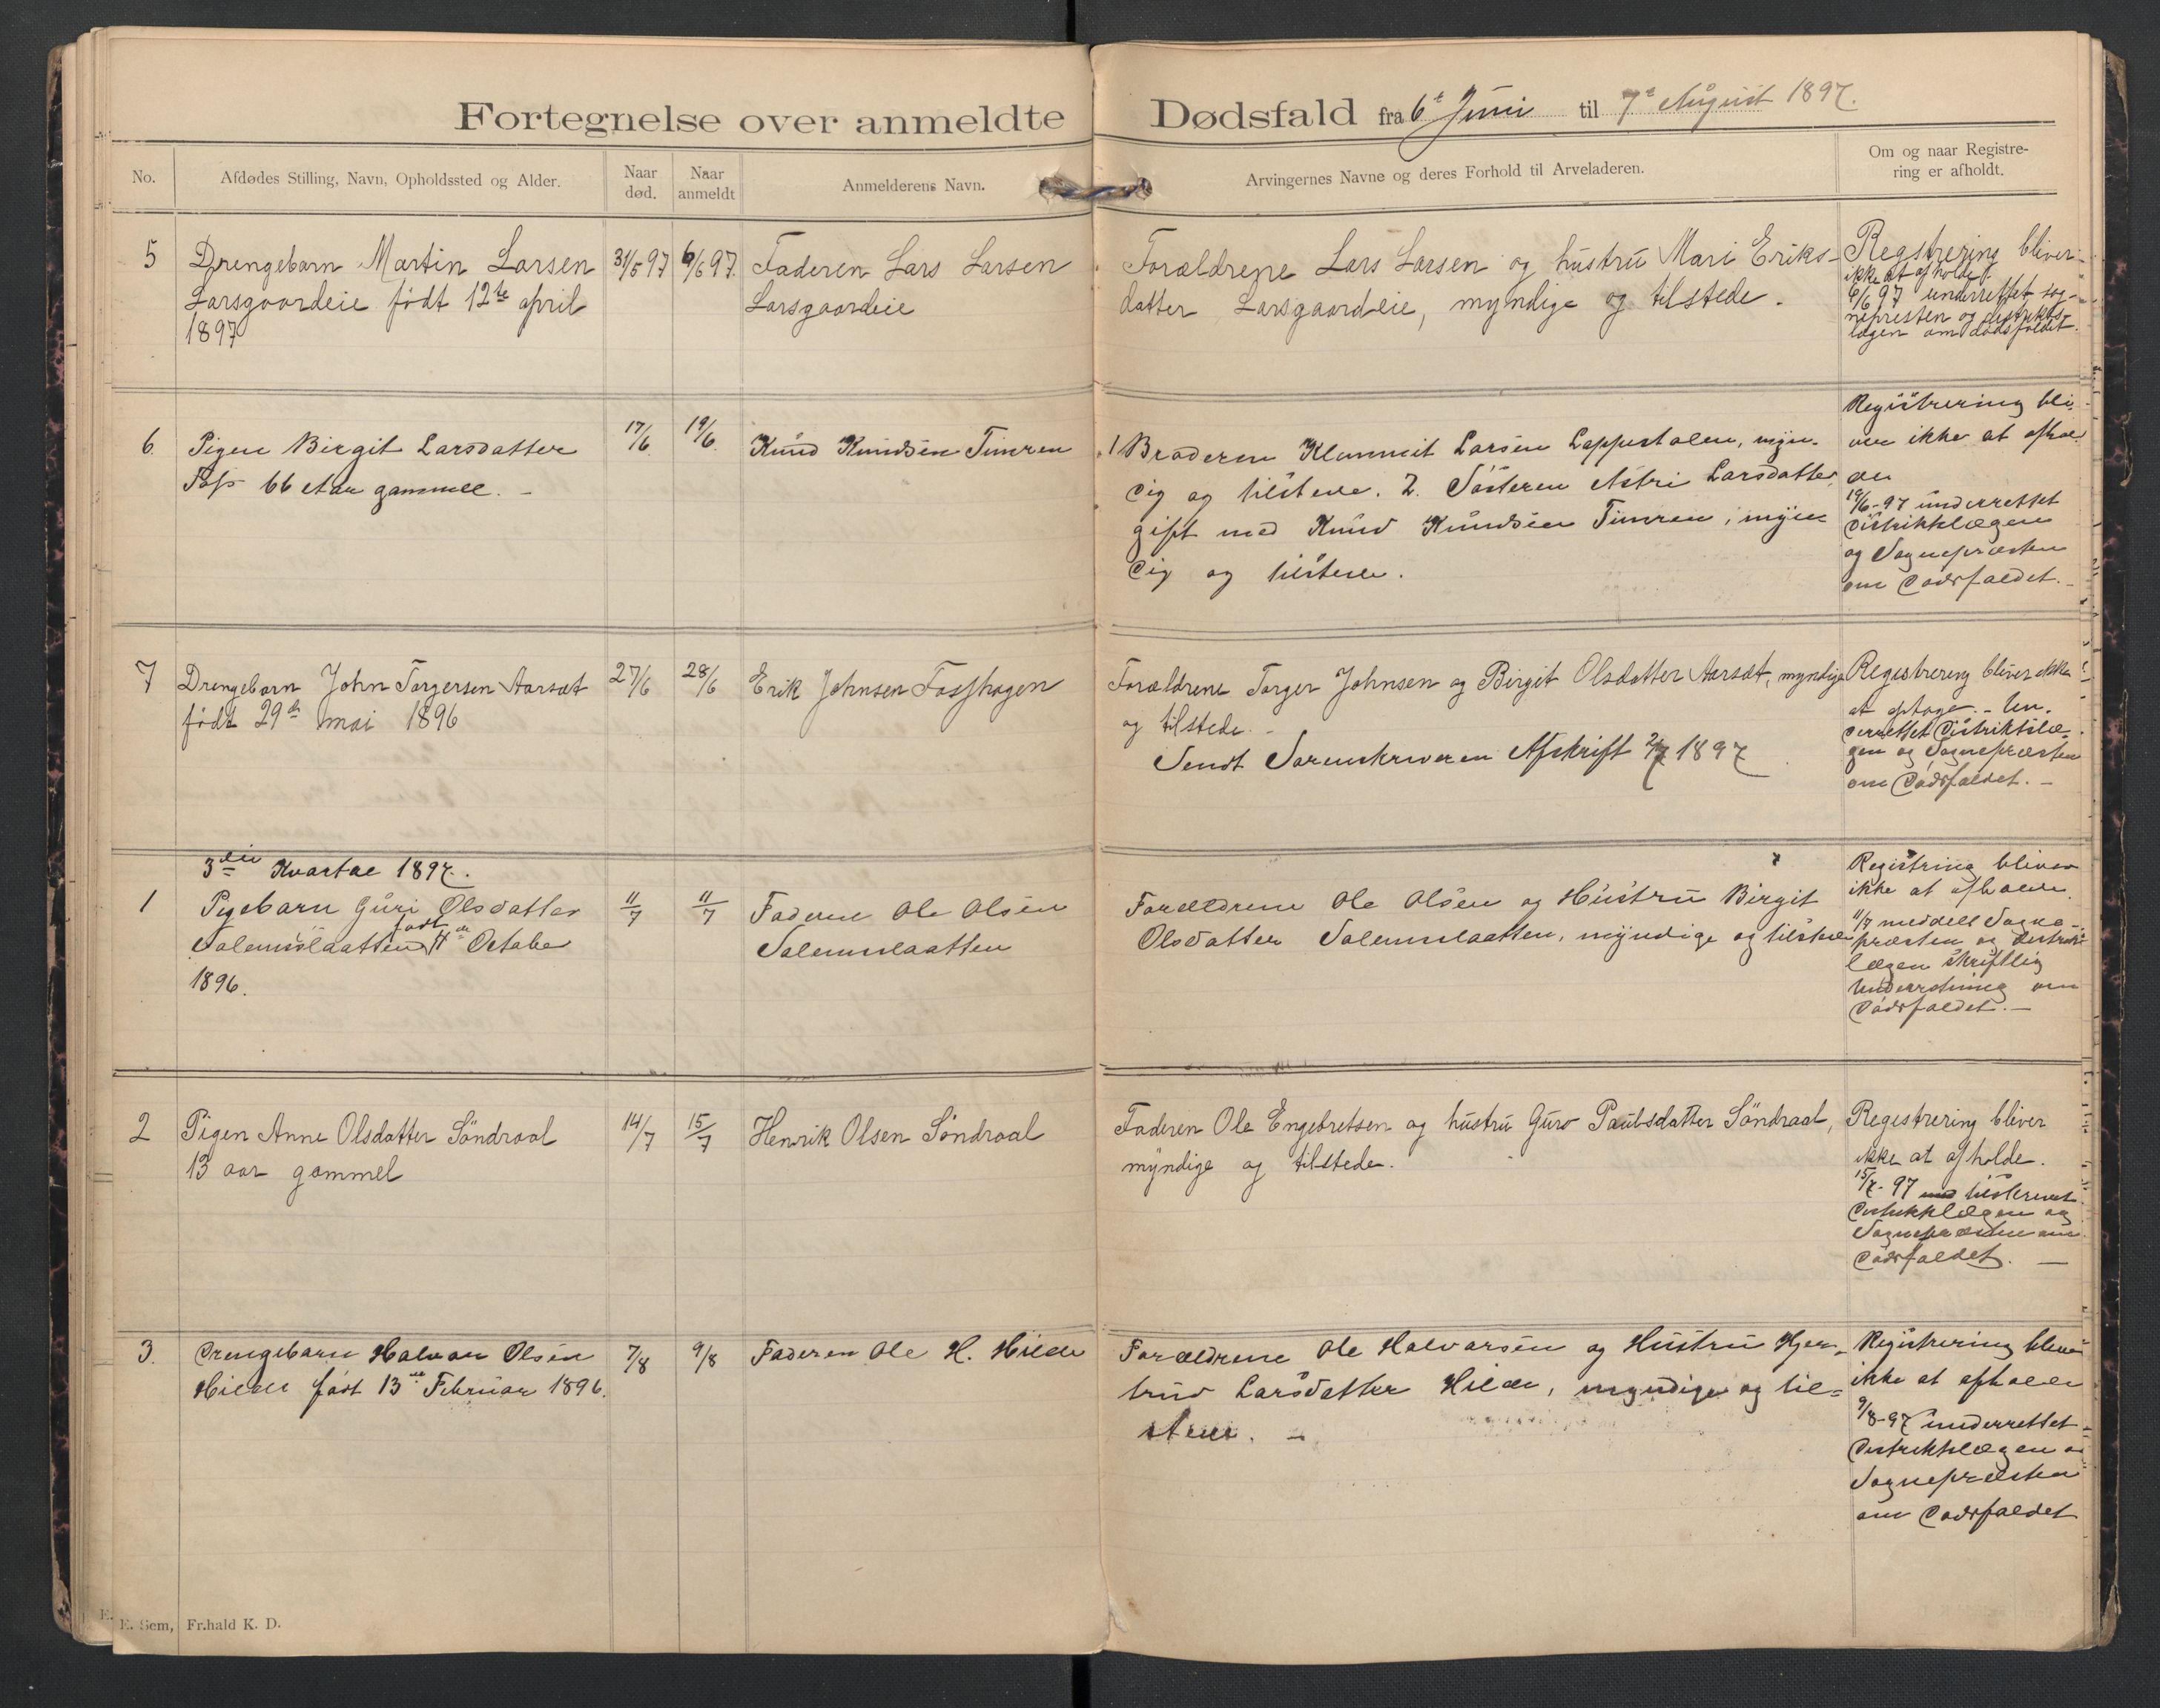 Fortegnelse over anmeldte Dødsfald fra 6te Juni til 7de August 1897.
No.
Afdødes Stilling, Navn, Opholdssted og Alder.
Naar død.
Naar anmeldt
Anmelderens Navn.
Arvingernes Navne og deres Forhold til Arveladeren.
Om og naar Registre-
ring er afholdt.
5
Drengebarn Martin Larsen
Larsgaardeie födt 12te april
1897
31/5 97
6/6 97.
Faderen Lars Larsen
Larsgaardeie
Forældrene Lars Larsen og hustru Mari Eriks-
datter Larsgaardeie, myndige og tilstede.
Regstrering bliver
ikke at afholde.
6/6 97 underrettet sog-
nepresten og distrikts-
lægen om dödsfaldet.
6.
Pigen Birgit Larsdatter
Foss 66 Aar gammel. -
17/6
19/6.
Knud Knudsen Timren
1 Broderen Klemmit Larsen Loppestolen, myn-
dig og tilstede. 2. Søsteren Astri Larsdatter
gift med Knud Knudsen Timren, myn
dig og tilstede.
Registrering bli-
ver ikke at afhol
de
19/6-97 underrettet
Distriktslægen
og Sognepræsten
om Dødsfaldet. -
7
Drengebarn John Torgersen Aarsæt
födt 29de mai 1896
27/6
28/6
Erik Johnsen Fosshagen
Forældrene Torger Johnsen og Birgit Olsdatter Aarsæt, myndige
og tilstede. -
Sendt Sorenskriveren Afskrift 2/7 1897
Registrering bliver ikke
at optage. - Un-
derrettet Distriktslæ-
gen og Sognepræsten
om Dødsfaldet. -
3die Kvartal 1897.
1
Pigebarn Guri Olsdatter
født
Solemslaatten 4de October
1896.
11/7
11/7
Faderen Ole Olsen
Solemslaatten
Forældrene Ole Olsen og Hustru Birgit
Olsdatter Solemslaatten, myndige og tilstede
Registring bliver
ikke at afholde.
11/7 meddelt Sogne-
præsten og Distrikts
lægen skriftlig
Underretning om
Dødsfaldet. -
2
Pigen Anne Olsdatter Söndraal
13 aar gammel
14/7
15/7
Henrik Olsen Söndraal
Faderen Ole Engebretsen og hustru Guro Paulsdatter Söndraal,
myndige og tilstede.
Registrering bliver
ikke at afholde.
15/7-97 tilskrevet
Distriktslægen og
Sognepræsten om
Dødsfaldet. -
3.
Drengebarn Halvor Olsen
Hilde født 13de Februar 1896.
7/8
9/8
Faderen Ole H. Hilde
Forældrene Ole Halvorsen og Hustru Hjer-
trud Larsdatter Hilde, myndige og til=
stede. -
Registrering bliver
ikke at afholde
9/8-97 underrettet
Distriktslægen og
Sognepræsten
om Dødsfaldet
E. Sem, Fr.hald K. D.